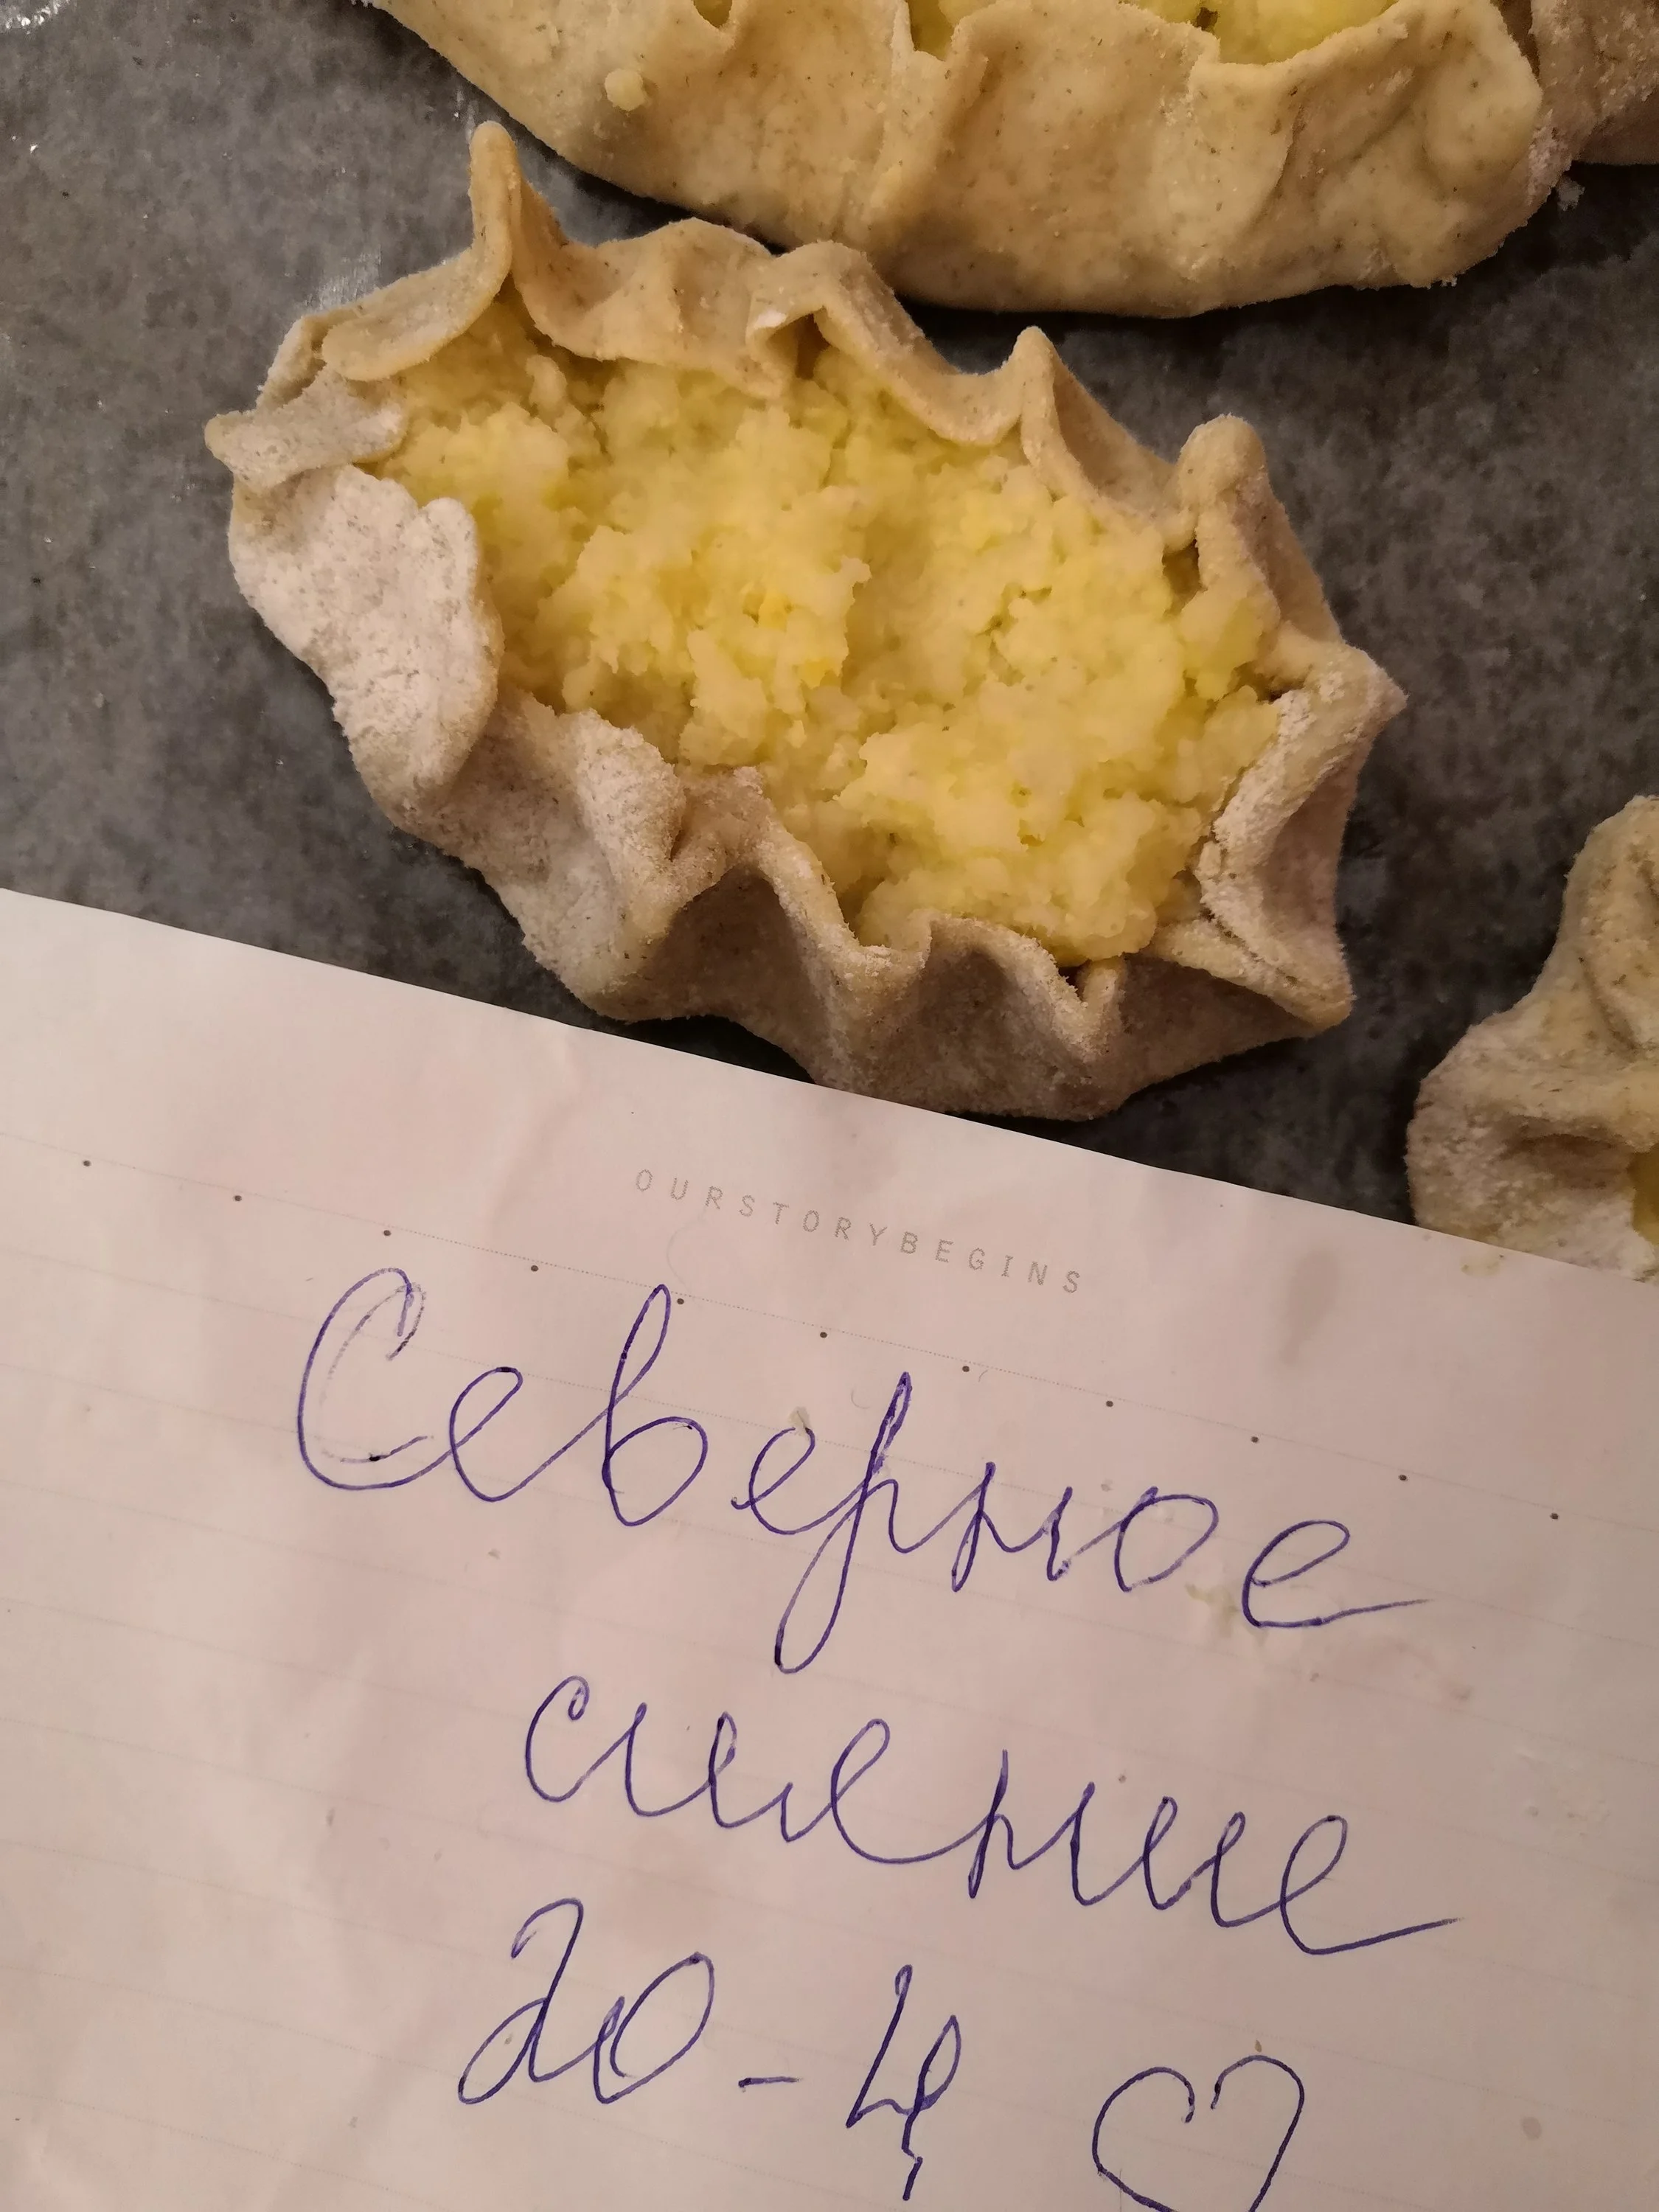 OURSTORYBEGINS
Северное
сияние
20-4 ♡